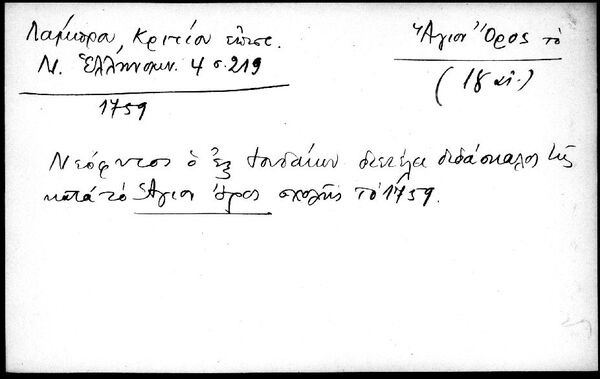 Λάμπρου, Κριτίου ἐπισ.
Ν. Ἑλληνομν. 4 σ. 219
1759
Ἅγιον Ὄρος τὸ
(18 αἰ.)
Νεόφυτος ὁ ἐξ Ἰουδαίων διετέλει διδάσκαλος τῆς
κατὰ τὸ Ἅγιον Ὄρος σχολῆς τὸ 1759.